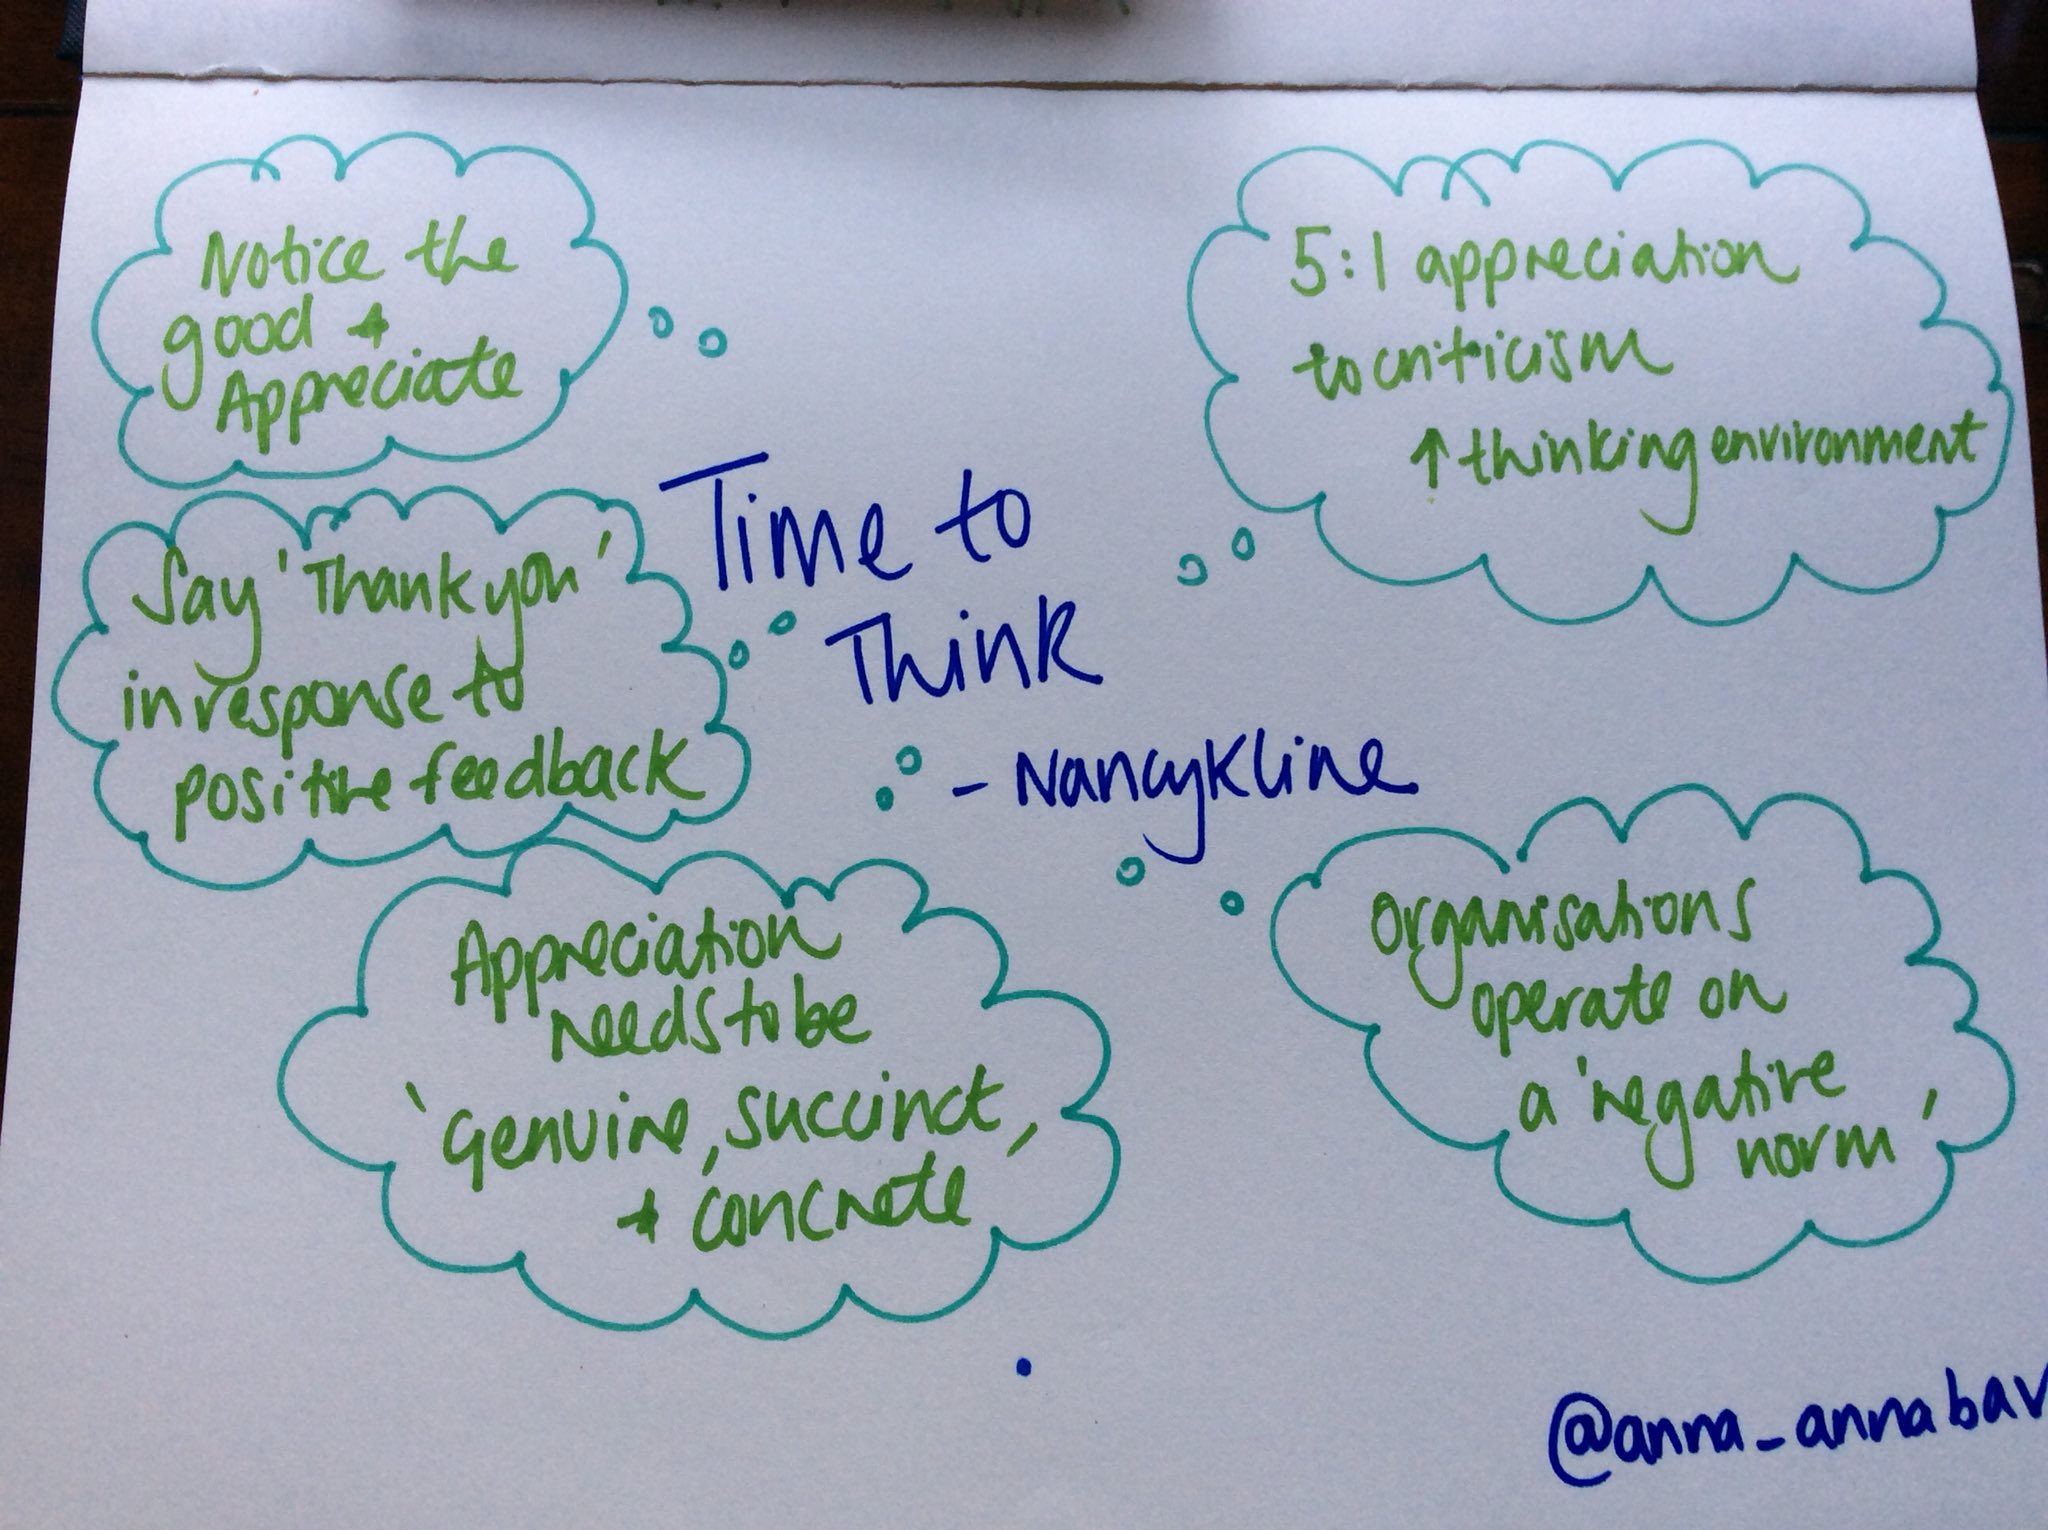 Notice the
good +
Appreciate
5:1 appreciation
to criticism
↑ thinking environment
Time to
Think
- Nancy Kline
Say 'Thank you'
in response to
positive feedback
Appreciation
needs to be
'genuine, succinct,
+ concrete'
Organisations
operate on
a 'negative
norm'
@anna_annabav